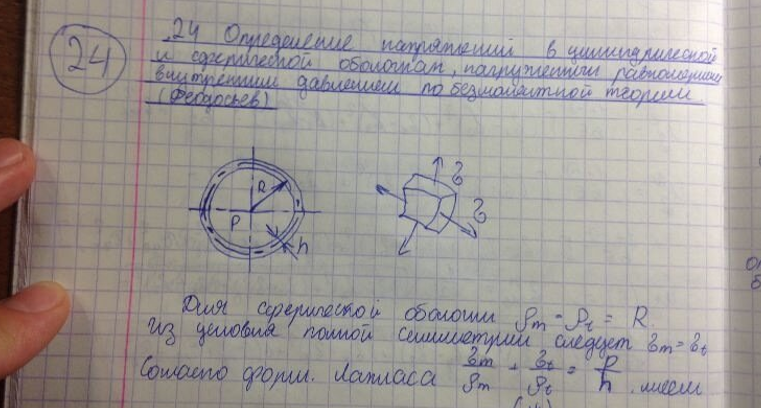 24
24 Определение напряжений в цилиндрической
и сферической оболочках, нагруженных равномерным
внутренним давлением по безмоментной теории.
(Феодосьев)
R
P
h
σ
σ
Для сферической оболочки ρm = ρt = R.
Из условия полной симметрии следует σm = σt
Согласно форм. Лапласа σm/ρm + σt/ρt = p/h имеем